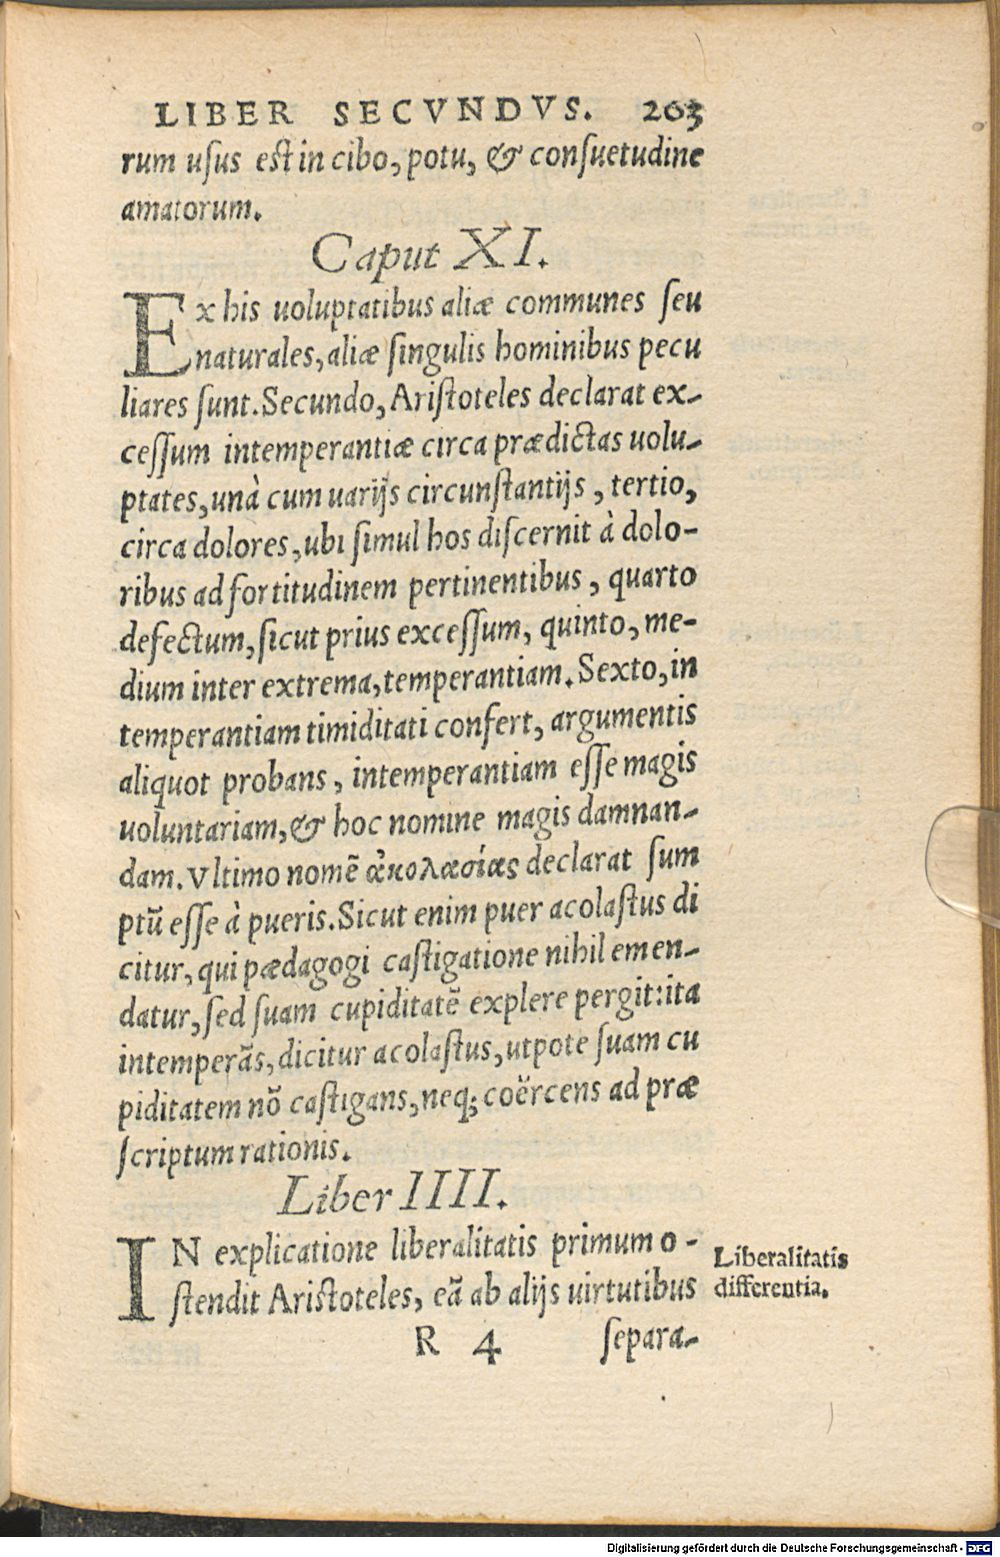 LIBER SECVNDVS. 203
rum usus est in cibo, potu, & consuetudine
amatorum.
Caput XI.
Ex his uoluptatibus aliæ communes seu
naturales, aliæ singulis hominibus pecu
liares sunt. Secundo, Aristoteles declarat ex-
cessum intemperantiæ circa prædictas uolu-
ptates, unà cum uarijs circunstantijs, tertio,
circa dolores, ubi simul hos discernit à dolo-
ribus ad fortitudinem pertinentibus, quarto
defectum, sicut prius excessum, quinto, me-
dium inter extrema, temperantiam. Sexto, in
temperantiam timiditati confert, argumentis
aliquot probans, intemperantiam esse magis
uoluntariam, & hoc nomine magis damnan-
dam. Vltimo nomẽ ἀκολασίας declarat sum
ptũ esse à pueris. Sicut enim puer acolastus di
citur, qui pædagogi castigatione nihil emen-
datur, sed suam cupiditatẽ explere pergit: ita
intemperãs, dicitur acolastus, utpote suam cu
piditatem nõ castigans, neq; coërcens ad præ
scriptum rationis.
Liber IIII.
IN explicatione liberalitatis primum o-
stendit Aristoteles, eã ab alijs uirtutibus
Liberalitatis
differentia.
R 4 separa-
Digitalisierung gefördert durch die Deutsche Forschungsgemeinschaft - DFG